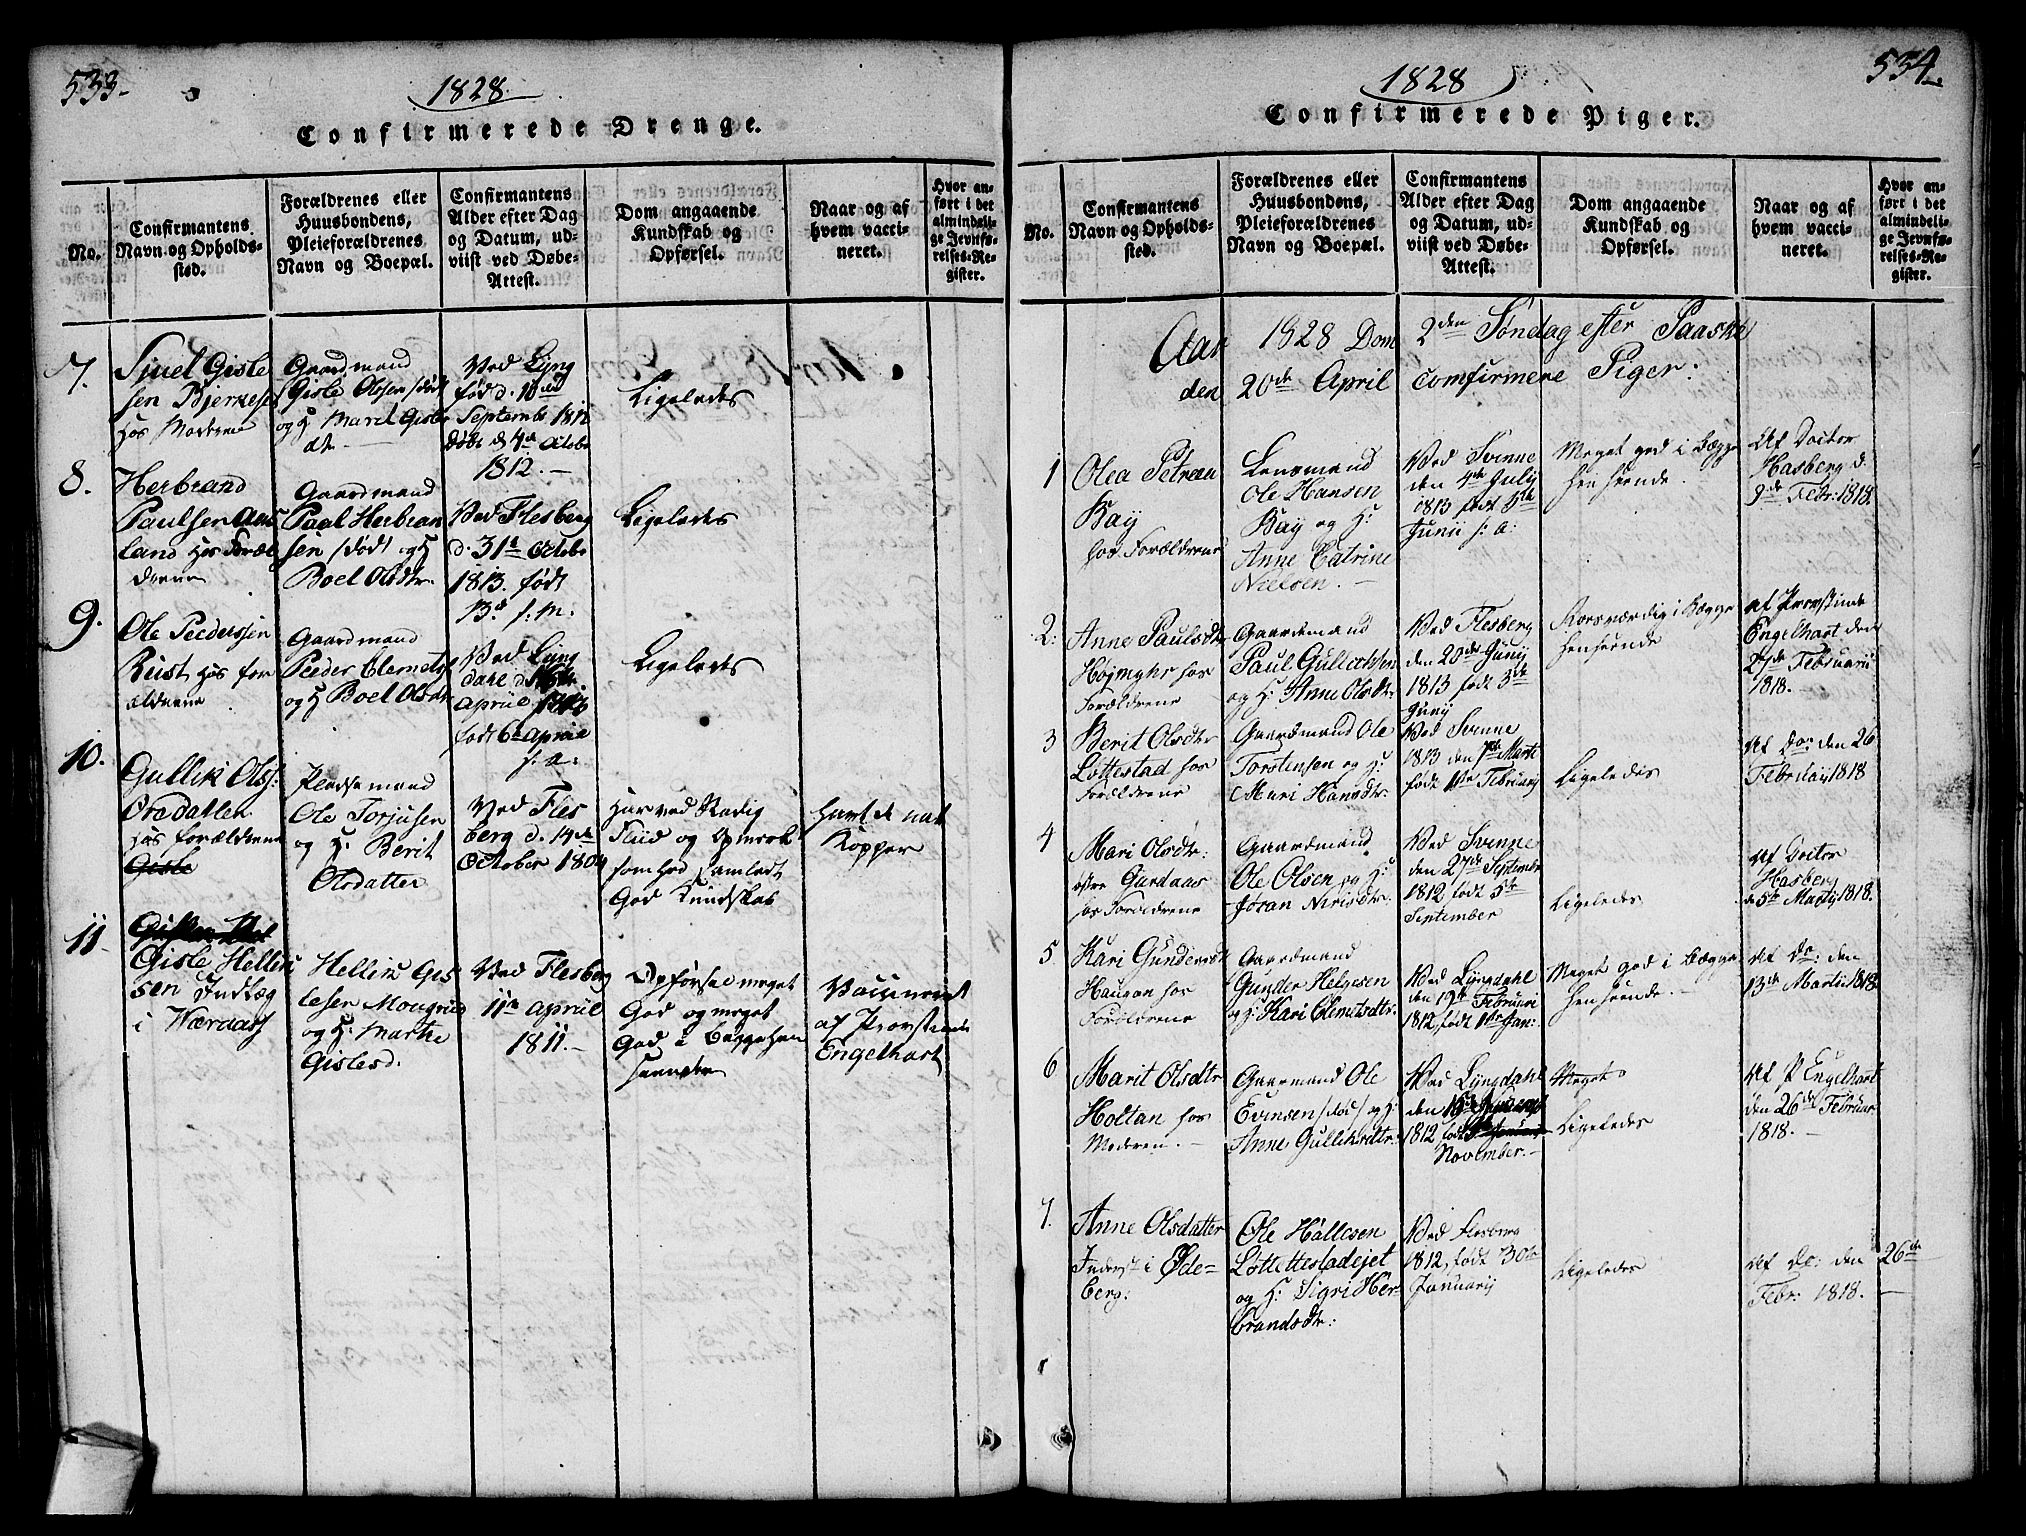 533.
1828.
Confirmerede Drenge.
No.
Confirmantens
Navn og Opholds-
sted.
Forældrenes eller
Huusbondens,
Pleieforældrenes
Navn og Boepæl.
Confirmantens
Alder efter Dag
og Datum, ud-
viist ved Døbe-
Attest.
Dom angaaende
Kundskab og
Opførsel.
Naar og af
hvem vacci-
neret.
Hvor an-
ført i det
almindeli-
ge Jevnfø-
relses-Re-
gister.
7.
Gisle
sen
hos Moderen
Gaardmand
Gisle Olsen /død/
og H: Marit Gisle
dt.
Ved Lyng
fød d. 10de
Septembr 1812
døbt d 4de Octobr
1812.
Ligeledes
8.
Herbrand
Paulsen Aas
land hos Foræl
drene
Gaardmand
Paul Herbran
sen /død/ og H
Boel Olsdtr.
Ved Flesberg
d. 31te Octobr
1813. født
13de s: m.
Ligeledes
9.
Ole Pedersen
Rust hos for
ældrene
Gaardmand
Peder Clemets
og H Boel Olsdtr
Ved Lyng
dahl d.
Aprill
født 6te Aprill
s: a:
Ligeledes
10.
Gullik Ols:
Øvedalen
hos forældrene
Gisle
Pladsemand
Ole Torjusen
og H: Berit
Olsdatter
Ved Fles
berg d. 14de
October 1804
har ved Stadig
Fliid og Opmærk
somhed samlet
God Kundskab
havt de nat
Kopper
11.
Gisle Hellik
sen Indlæg
i Værdaas
Hellik Gis
lesen Mougrud
og H: Marthe
Gislesd.
Ved Flesberg
11te Aprill
1811.
Opførsel meget
God og meget
God i begge Hen
seender
Vaccineret
af Provstinde
Engelhart
534.
1828
Confirmerede Piger.
No.
Confirmantens
Navn og Opholds-
sted.
Forældrenes eller
Huusbondens,
Pleieforældrenes
Navn og Boepæl.
Confirmantens
Alder efter Dag
og Datum, ud-
viist ved Døbe-
Attest.
Dom angaaende
Kundskab og
Opførsel.
Naar og af
hvem vacci-
neret.
Hvor an-
ført i det
almindeli-
ge Jevnfø-
relses-Re-
gister.
Aar 1828 Dom 2den Søndag efter Paaske
den 20de April comfirmere Piger:
1
Olea Petrea
Bay
hos Forældrene
Lensmand
Ole Hansen
Bay og H:
Anne Catrine
Nielsen.
Ved Svenne
den 4de July
1813 født 5te
Junii s: a:
Meget god i Begge
henseende.
Af Doctor
Hasberg d.
9de Febr: 1818.
2.
Anne Paulsdtr
hos
Forældrene
Gaardmand
Paul Gulleksen
og H: Anne Olsdtr
Ved Flesberg
den 20de Juny
1813 født 3de
Juny
Roesværdig i Begge
henseende
af Provstinde
Engelhart den
27de Februarii
1818.
3
Berit Olsdtr
Lottestad hos
Forældrene
Gaardmand Ole
Torstensen og H:
Mari Hansdtr.
Ved Svenne
1813 den 7de Marti
født 1te Februarj
Ligeledes
Af Do: den 26
Februay 1818
4
Mari Olsdtr:
østre Gardaas
hos Forældrene
Gaardmand
Ole Olsen og H:
Jøran Nirisdtr:
Ved Svenne
den 27de Septembr
1812 født 5te
September
Ligeledes
Af Doctor
Hasberg
d 5te Martj 1818.
5
Kari Gundersdt
Haugan hos
Forældrene
Gaardmand
Gunder Helgesen
og H: Kari Clemetsdtr.
Ved Lyngdahl
den 19de Februari
1812, født 1te Jan:
Meget god i Begge
henseende.
Af Do: den
13de Martii 1818.
6
Marit Olsdtr
Holtan hos
Moderen.
Gaarmand Ole
Evensen /død/ og H:
Anne Gulliksdtr:
Ved Lyngdahl
den
1812 født
November.
Meget
Ligeledes
Af P Engelhart
den 26de Februar
1818.
7.
Anne Olsdatter
Inderst i Øde-
berg:
Ole Hallesen
Løttestadejet
og H: Sigri Her-
brandsdtr:
Ved Flesberg
1812, født 30te
Januarij
Ligeledes
Af Do: den 26de
Febr: 1818.